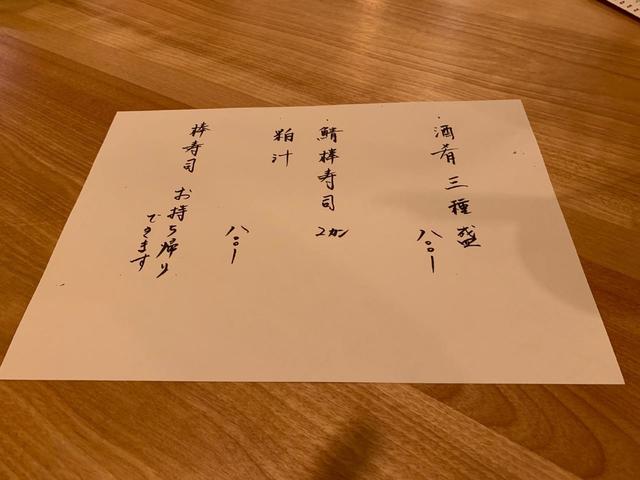 ・酒肴三種盛
八〇〇ー
・鯖棒寿司 2カン
粕汁
八〇〇ー
棒寿司 お持ち帰り
できます